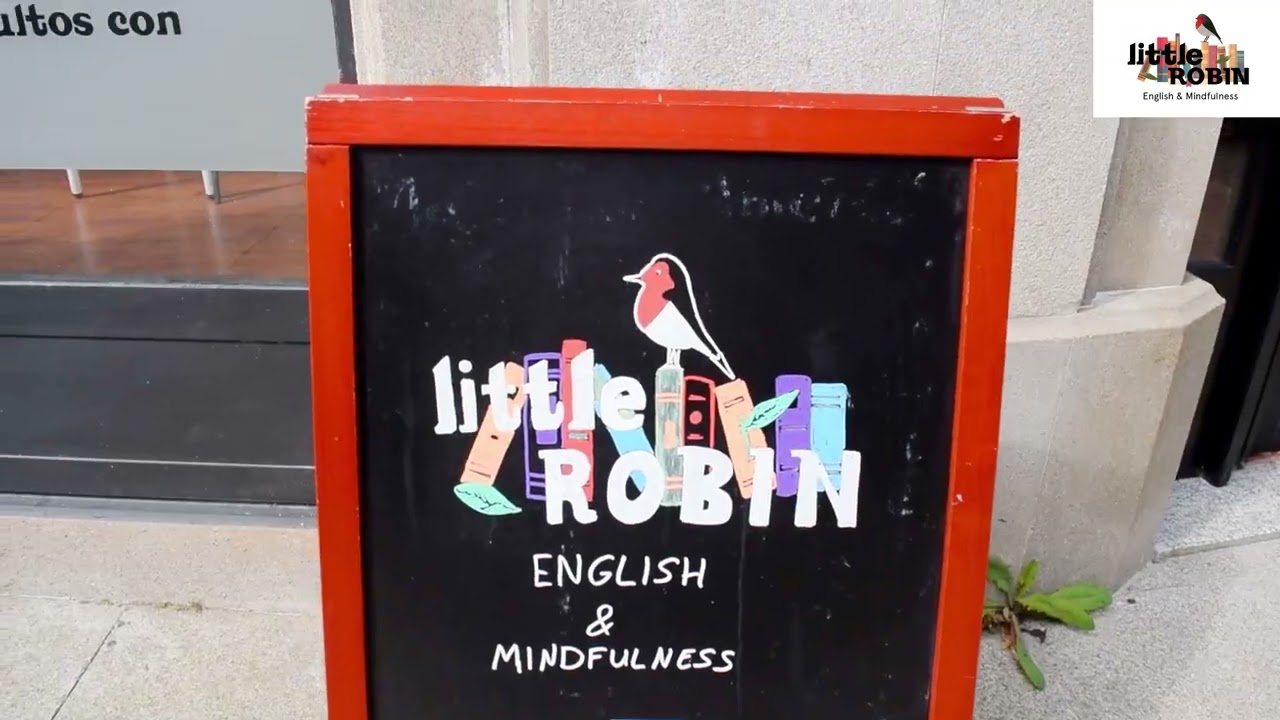 con
little
ROBIN
English & Mindfulness
little
ROBIN
ENGLISH
&
MINDFULNESS